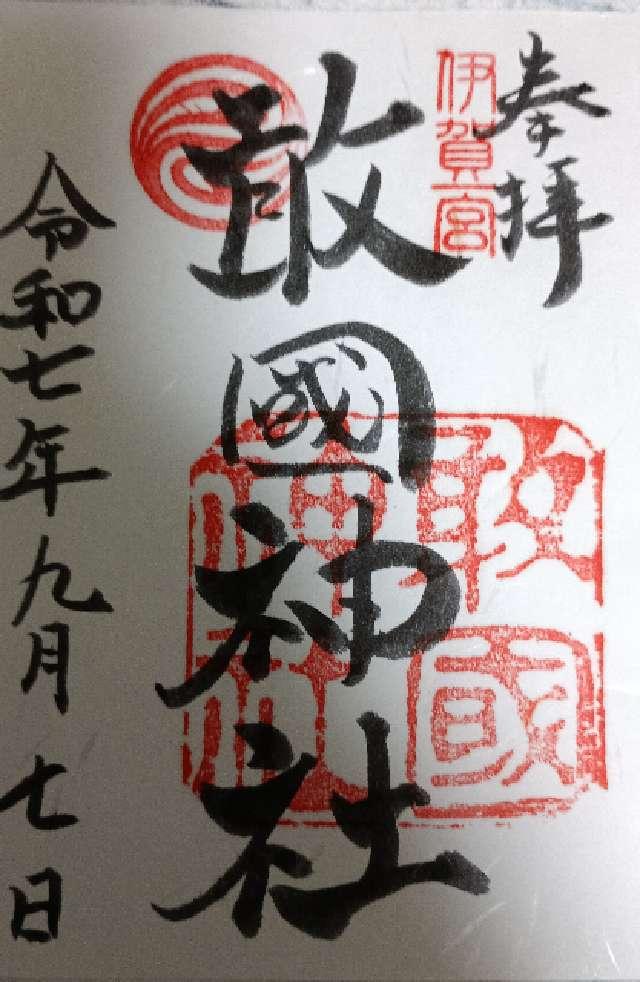 奉拝
伊賀一宮
敢國神社
敢國神社
令和七年九月七日